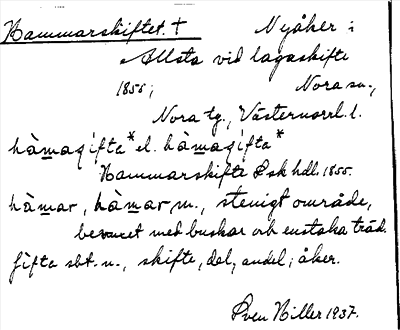 Hammarskiftet. † Nyåker i
Allsta vid lagaskifte
1855; Nora sn.,
Nora tg., Västernorrl. l.
hàmagífta* el. hàmagífta*
Hammarskifte Lsk hdl. 1855.
hàmar, hàmar m., stenigt område,
bevuxet med buskar och enstaka träd.
gífta sbt. n., skifte, del, andel; åker.
Sven Hiller 1937.